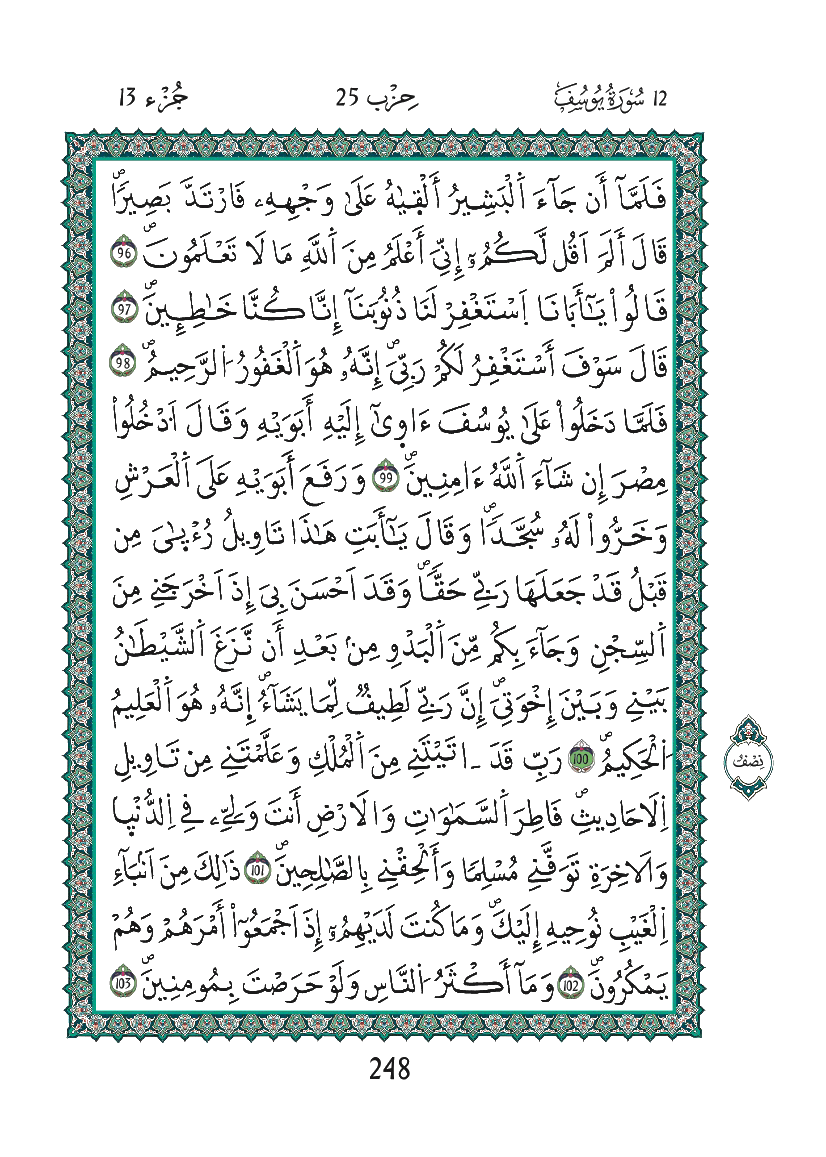 12 سُورَةُ يُوسُفَ حِزْب 25 جُزْء 13
فَلَمَّآ أَن جَآءَ اَ۬لْبَشِيرُ أَلْق۪يٰهُ عَلَىٰ وَجْهِهِۦ فَارْتَدَّ بَصِيراٗۖ
قَالَ أَلَمَ اَقُل لَّكُمُۥٓ إِنِّيَ أَعْلَمُ مِنَ اَ۬للَّهِ مَا لَا تَعْلَمُونَۖ 96
قَالُواْ يَٰٓأَبَانَا اَ۪سْتَغْفِرْ لَنَا ذُنُوبَنَآ إِنَّا كُنَّا خَٰطِـِٕينَۖ 97
قَالَ سَوْفَ أَسْتَغْفِرُ لَكُمْ رَبِّيَۖ إِنَّهُۥ هُوَ اَ۬لْغَفُورُ اُ۬لرَّحِيمُۖ 98
فَلَمَّا دَخَلُواْ عَلَىٰ يُوسُفَ ءَاو۪يٰٓ إِلَيْهِ أَبَوَيْهِ وَقَالَ اَ۟دْخُلُواْ
مِصْرَ إِن شَآءَ اَ۬للَّهُ ءَامِنِينَۖ 99 وَرَفَعَ أَبَوَيْهِ عَلَى اَ۬لْعَرْشِ
وَخَرُّواْ لَهُۥ سُجَّداٗۖ وَقَالَ يَٰٓأَبَتِ هَٰذَا تَاوِيلُ رُءْيٰ۪يَ مِن
قَبْلُ قَدْ جَعَلَهَا رَبِّے حَقّاٗۖ وَقَدَ اَحْسَنَ بِيَ إِذَ اَخْرَجَنِے مِنَ
اَ۬لسِّجْنِ وَجَآءَ بِكُم مِّنَ اَ۬لْبَدْوِ مِنۢ بَعْدِ أَن نَّزَغَ اَ۬لشَّيْطَٰنُ
بَيْنِے وَبَيْنَ إِخْوَتِيَۖ إِنَّ رَبِّے لَطِيفٞ لِّمَا يَشَآءُۖ إِنَّهُۥ هُوَ اَ۬لْعَلِيمُ
اُ۬لْحَكِيمُۖ 100 رَبِّ قَدَ اٰتَيْتَنِے مِنَ اَ۬لْمُلْكِ وَعَلَّمْتَنِے مِن تَاوِيلِ
اِ۬لَاحَادِيثِۖ فَاطِرَ اَ۬لسَّمَٰوَٰتِ وَالَارْضِ أَنتَ وَلِيِّۦ فِے اِ۬لدُّنْي۪ا
وَالَاخِرَةِ تَوَفَّنِے مُسْلِماٗ وَأَلْحِقْنِے بِالصَّٰلِحِينَۖ 101 ذَٰلِكَ مِنَ اَنۢبَآءِ
اِ۬لْغَيْبِ نُوحِيهِ إِلَيْكَۖ وَمَا كُنتَ لَدَيْهِمُۥٓ إِذَ اَجْمَعُوٓاْ أَمْرَهُمْ وَهُمْ
يَمْكُرُونَۖ 102 وَمَآ أَكْثَرُ اُ۬لنَّاسِ وَلَوْ حَرَصْتَ بِمُومِنِينَۖ 103
نِصْفُ
248